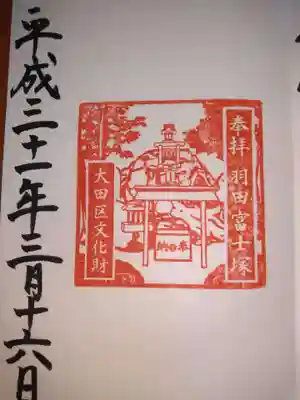 奉拝 羽田富士塚
大田区文化財
奉納
平成三十一年三月十六日